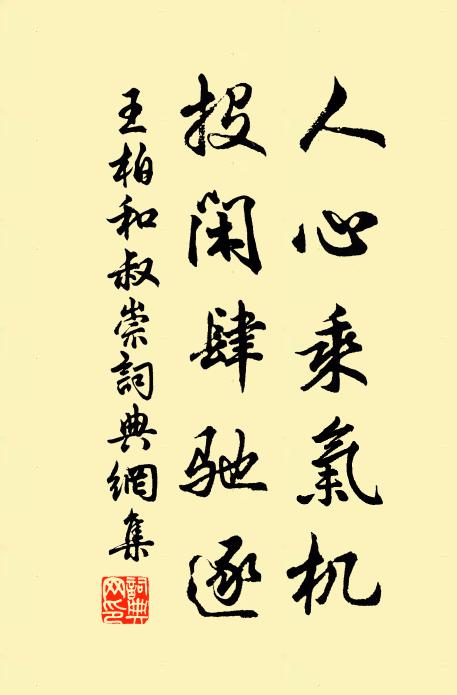 人心乘氣机
投闲肆馳逐
王柏和叔崇詞典網集
詞典網印